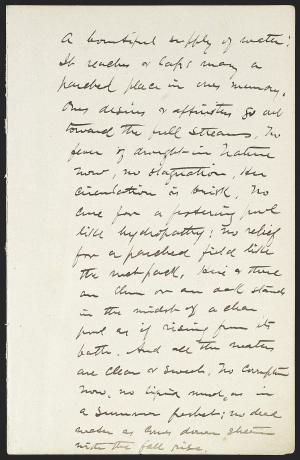 A bountiful supply of water!
It reaches or laps many a
parched place in ones memory.
Ones desires or affinities go out
toward the full streams. No
fever of drought in Nature
now, no stagnation. Her
circulation is brisk. No
cure for a festering pool
like hydropathy; no relief
for a parched field like
the wet pack. Here & there
an elm or an oak stands
in the midst of a clear
pool as if rising from its
bath. And all the waters
are clear & sweet. No
now, no liquid mud, as in
a summer freshet; no dead
water as comes down stream
with the fall rise.